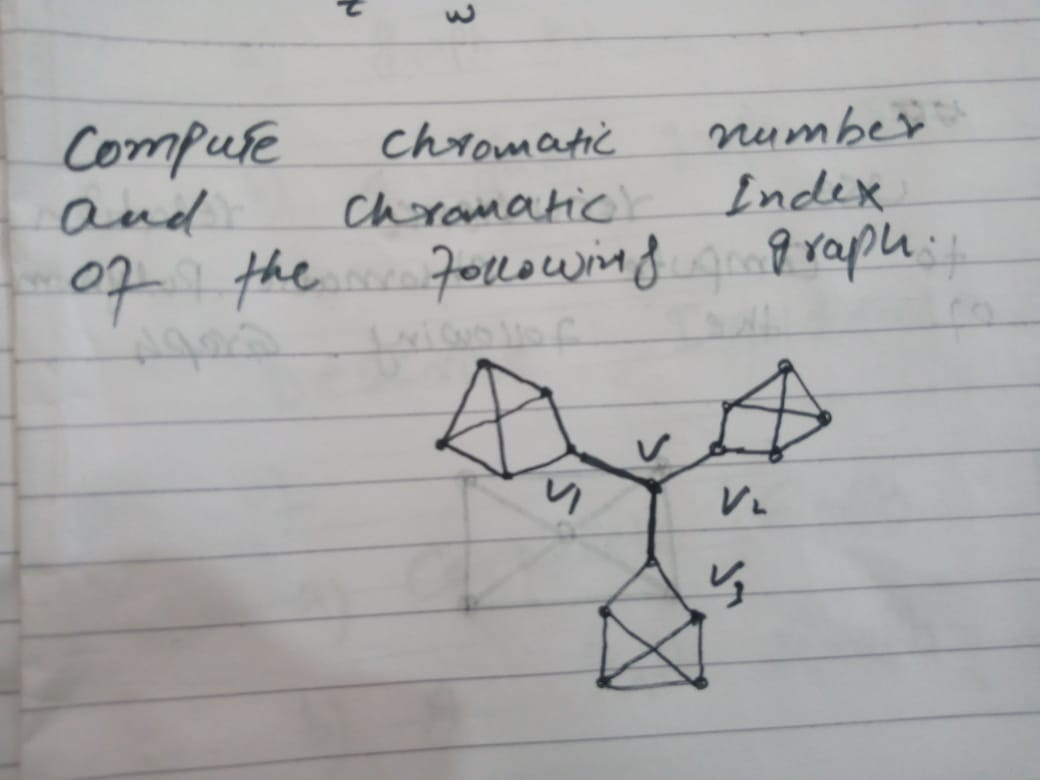 τ w
Compute chromatic number
and chromatic Index
of the following graph.
V
V1 V2
V3